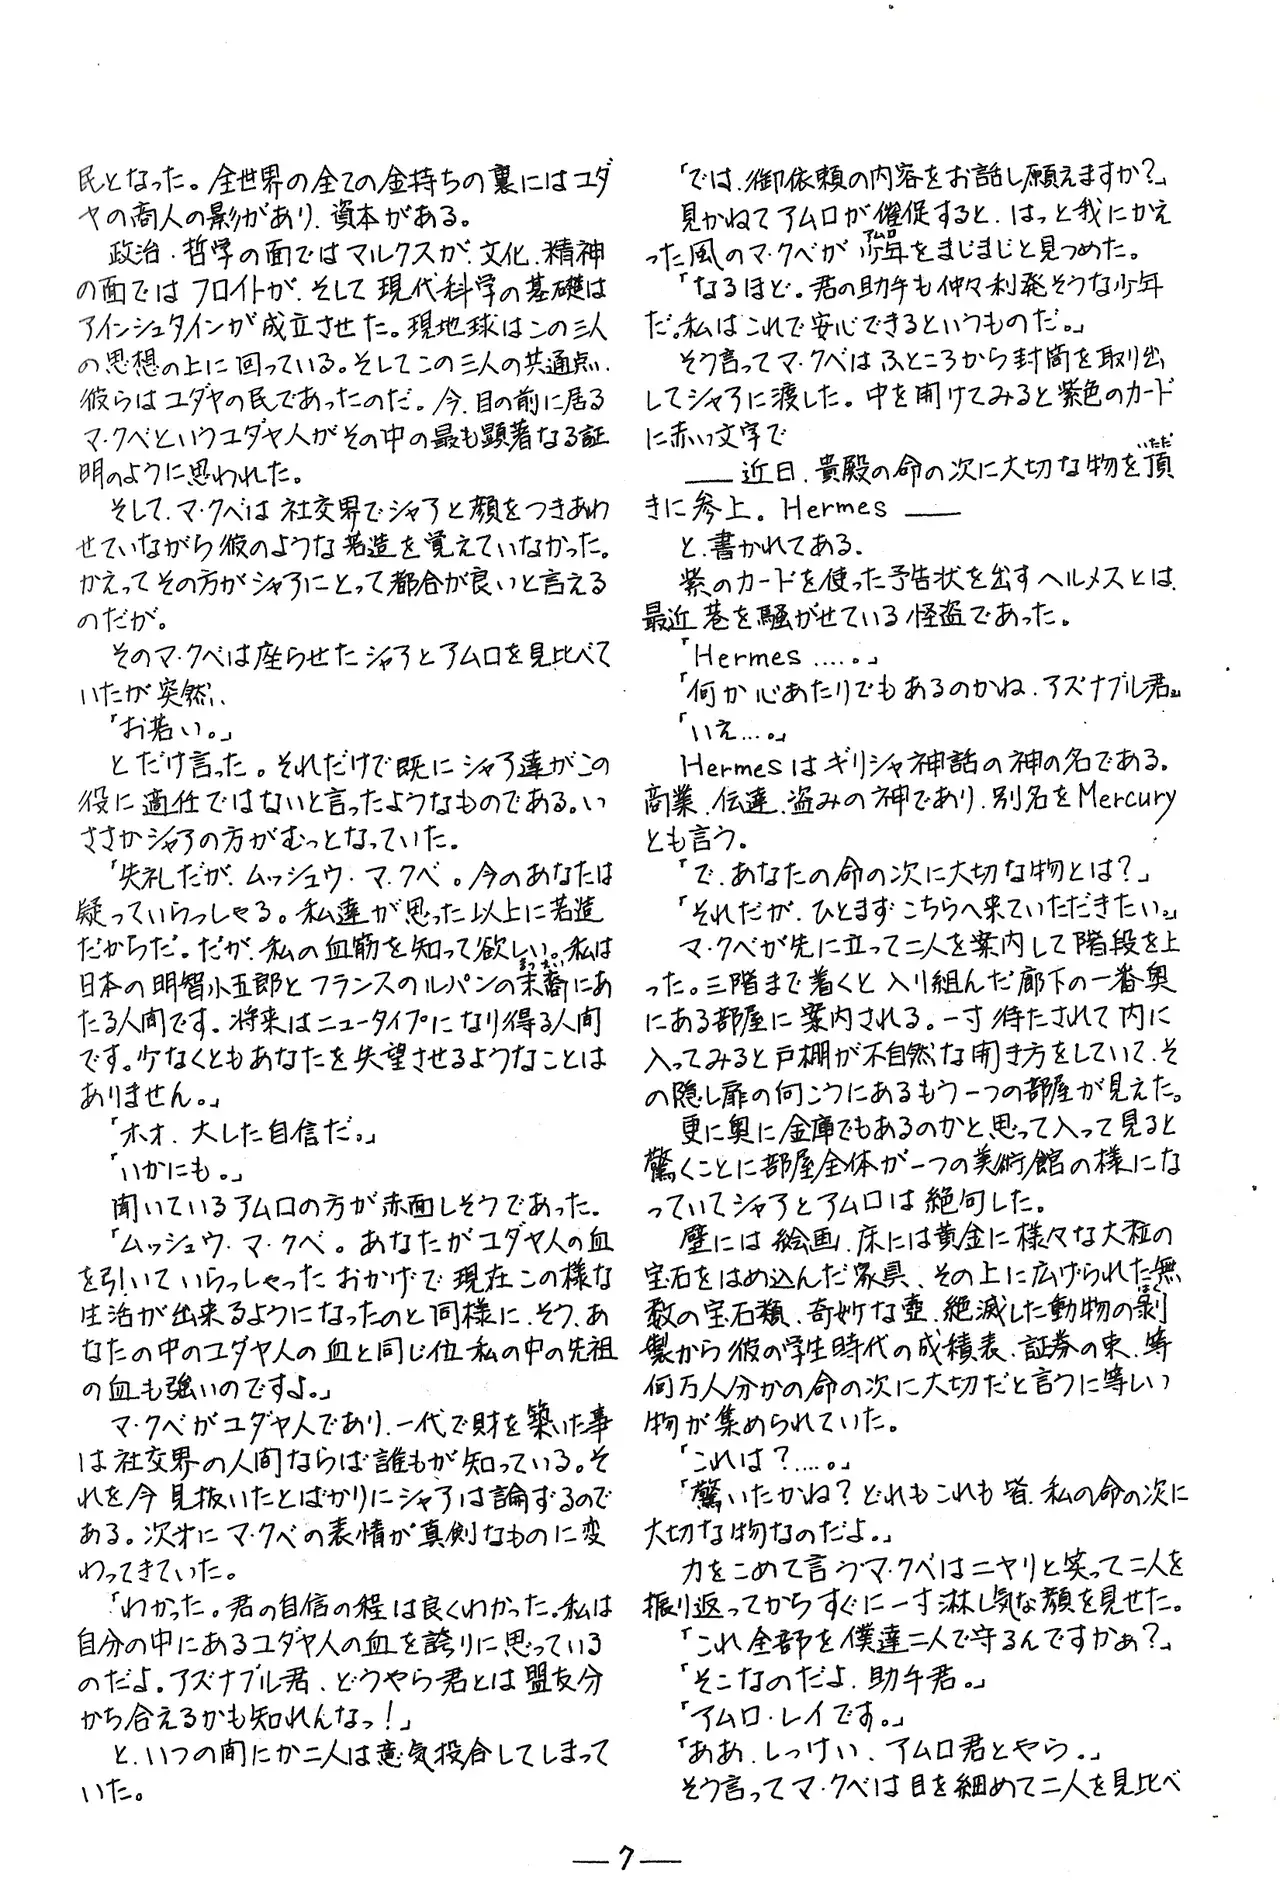 民となった。全世界の全ての金持ちの裏にはユダ
ヤの商人の影があり、資本がある。
政治、哲学の面ではマルクスが、文化、精神
の面ではフロイトが、そして現代科学の基礎は
アインシュタインが成立させた。現地球はこの三人
の思想の上に回っている。そしてこの三人の共通点、
彼らはユダヤの民であったのだ。今、目の前に居る
マ・クベというユダヤ人がその中の最も顕著なる証
明のように思われた。
そして、マ・クベは社交界でシャアと顔をつきあわ
せていながら彼のような若造を覚えていなかった。
かえってその方がシャアにとって都合が良いと言える
のだが。
そのマ・クベは座らせたシャアとアムロを見比べて
いたが突然、
「お若い。」
とだけ言った。それだけで既にシャア達がこの
役に適任ではないと言ったようなものである。い
ささかシャアの方がむっとなっていた。
「失礼だが、ムッシュウ・マ・クベ。今のあなたは
疑っていらっしゃる。私達が思った以上に若造
だからだ。だが、私の血筋を知って欲しい。私は
日本の明智小五郎とフランスのルパンの末裔(まつえい)にあ
たる人間です。将来はニュータイプになり得る人間
です。少なくともあなたを失望させるようなことは
ありません。」
「ホオ、大した自信だ。」
「いかにも。」
聞いているアムロの方が赤面しそうであった。
「ムッシュウ・マ・クベ。あなたがユダヤ人の血
を引いていらっしゃったおかげで現在この様な
生活が出来るようになったのと同様に、そう、あ
なたの中のユダヤ人の血と同じ位私の中の先祖
の血も強いのですよ。」
マ・クベがユダヤ人であり、一代で財を築いた事
は社交界の人間ならば誰もが知っている。そ
れを今見抜いたとばかりにシャアは論ずるので
ある。次才にマ・クベの表情が真剣なものに変
わってきていた。
「わかった。君の自信の程は良くわかった。私は
自分の中にあるユダヤ人の血を誇りに思っている
のだよ。アズナブル君、どうやら君とは盟友分
かち合えるかも知れんなっ!」
と、いつの間にか二人は意気投合してしまって
いた。
「では、御依頼の内容をお話し願えますか?」
見かねてアムロが催促すると、はっと我にかえ
った風のマ・クベが少年(アムロ)をまじまじと見つめた。
「なるほど。君の助手も仲々利発そうな少年
だ。私はこれで安心できるというものだ。」
そう言ってマ・クベはふところから封筒を取り出
してシャアに渡した。中を開けてみると紫色のカード
に赤い文字で
――近日、貴殿の命の次に大切な物を頂(いただ)
きに参上。Hermes――
と、書かれてある。
紫のカードを使った予告状を出すヘルメスとは、
最近巷を騒がせている怪盗であった。
「Hermes……。」
「何か心あたりでもあるのかね、アズナブル君。」
「いえ…。」
Hermesはギリシャ神話の神の名である。
商業、伝達、盗みの神であり、別名をMercury
とも言う。
「で、あなたの命の次に大切な物とは?」
「それだが、ひとまずこちらへ来ていただきたい。」
マ・クベが先に立って二人を案内して階段を上
った。三階まで着くと入り組んだ廊下の一番奥
にある部屋に案内される。一寸待たされて内に
入ってみると戸棚が不自然な開き方をしていて、そ
の隠し扉の向こうにあるもう一つの部屋が見えた。
更に奥に金庫でもあるのかと思って入って見ると
驚くことに部屋全体が一つの美術館の様にな
っていてシャアとアムロは絶句した。
壁には絵画、床には黄金に様々な大粒の
宝石をはめ込んだ家具、その上に広げられた無
数の宝石類、奇妙な壺、絶滅した動物の剥(はく)
製から彼の学生時代の成積表、証券の束、等
何万人分かの命の次に大切だと言うに等しい
物が集められていた。
「これは?……。」
「驚いたかね?どれもこれも皆、私の命の次に
大切な物なのだよ。」
力をこめて言うマ・クベはニヤリと笑って二人を
振り返ってからすぐに一寸淋し気な顔を見せた。
「これ全部を僕達二人で守るんですかぁ?」
「そこなのだよ、助手君。」
「アムロ・レイです。」
「ああ、しっけい、アムロ君とやら。」
そう言ってマ・クベは目を細めて二人を見比べ
―7―